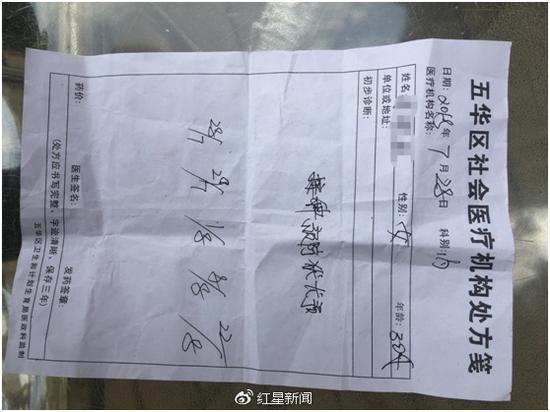 五华区社会医疗机构处方笺
日期：2018年7月28日 科别：内
医疗机构名称：
姓名： 性别：女 年龄：33岁
单位或地址：
初步诊断：
28/7 28/7 1/8 8/8 22/8
药价： 医生签名： 发药签章：
(处方应书写完整、字迹清晰、保存三年)
五华区卫生和计划生育局医政科监制
红星新闻